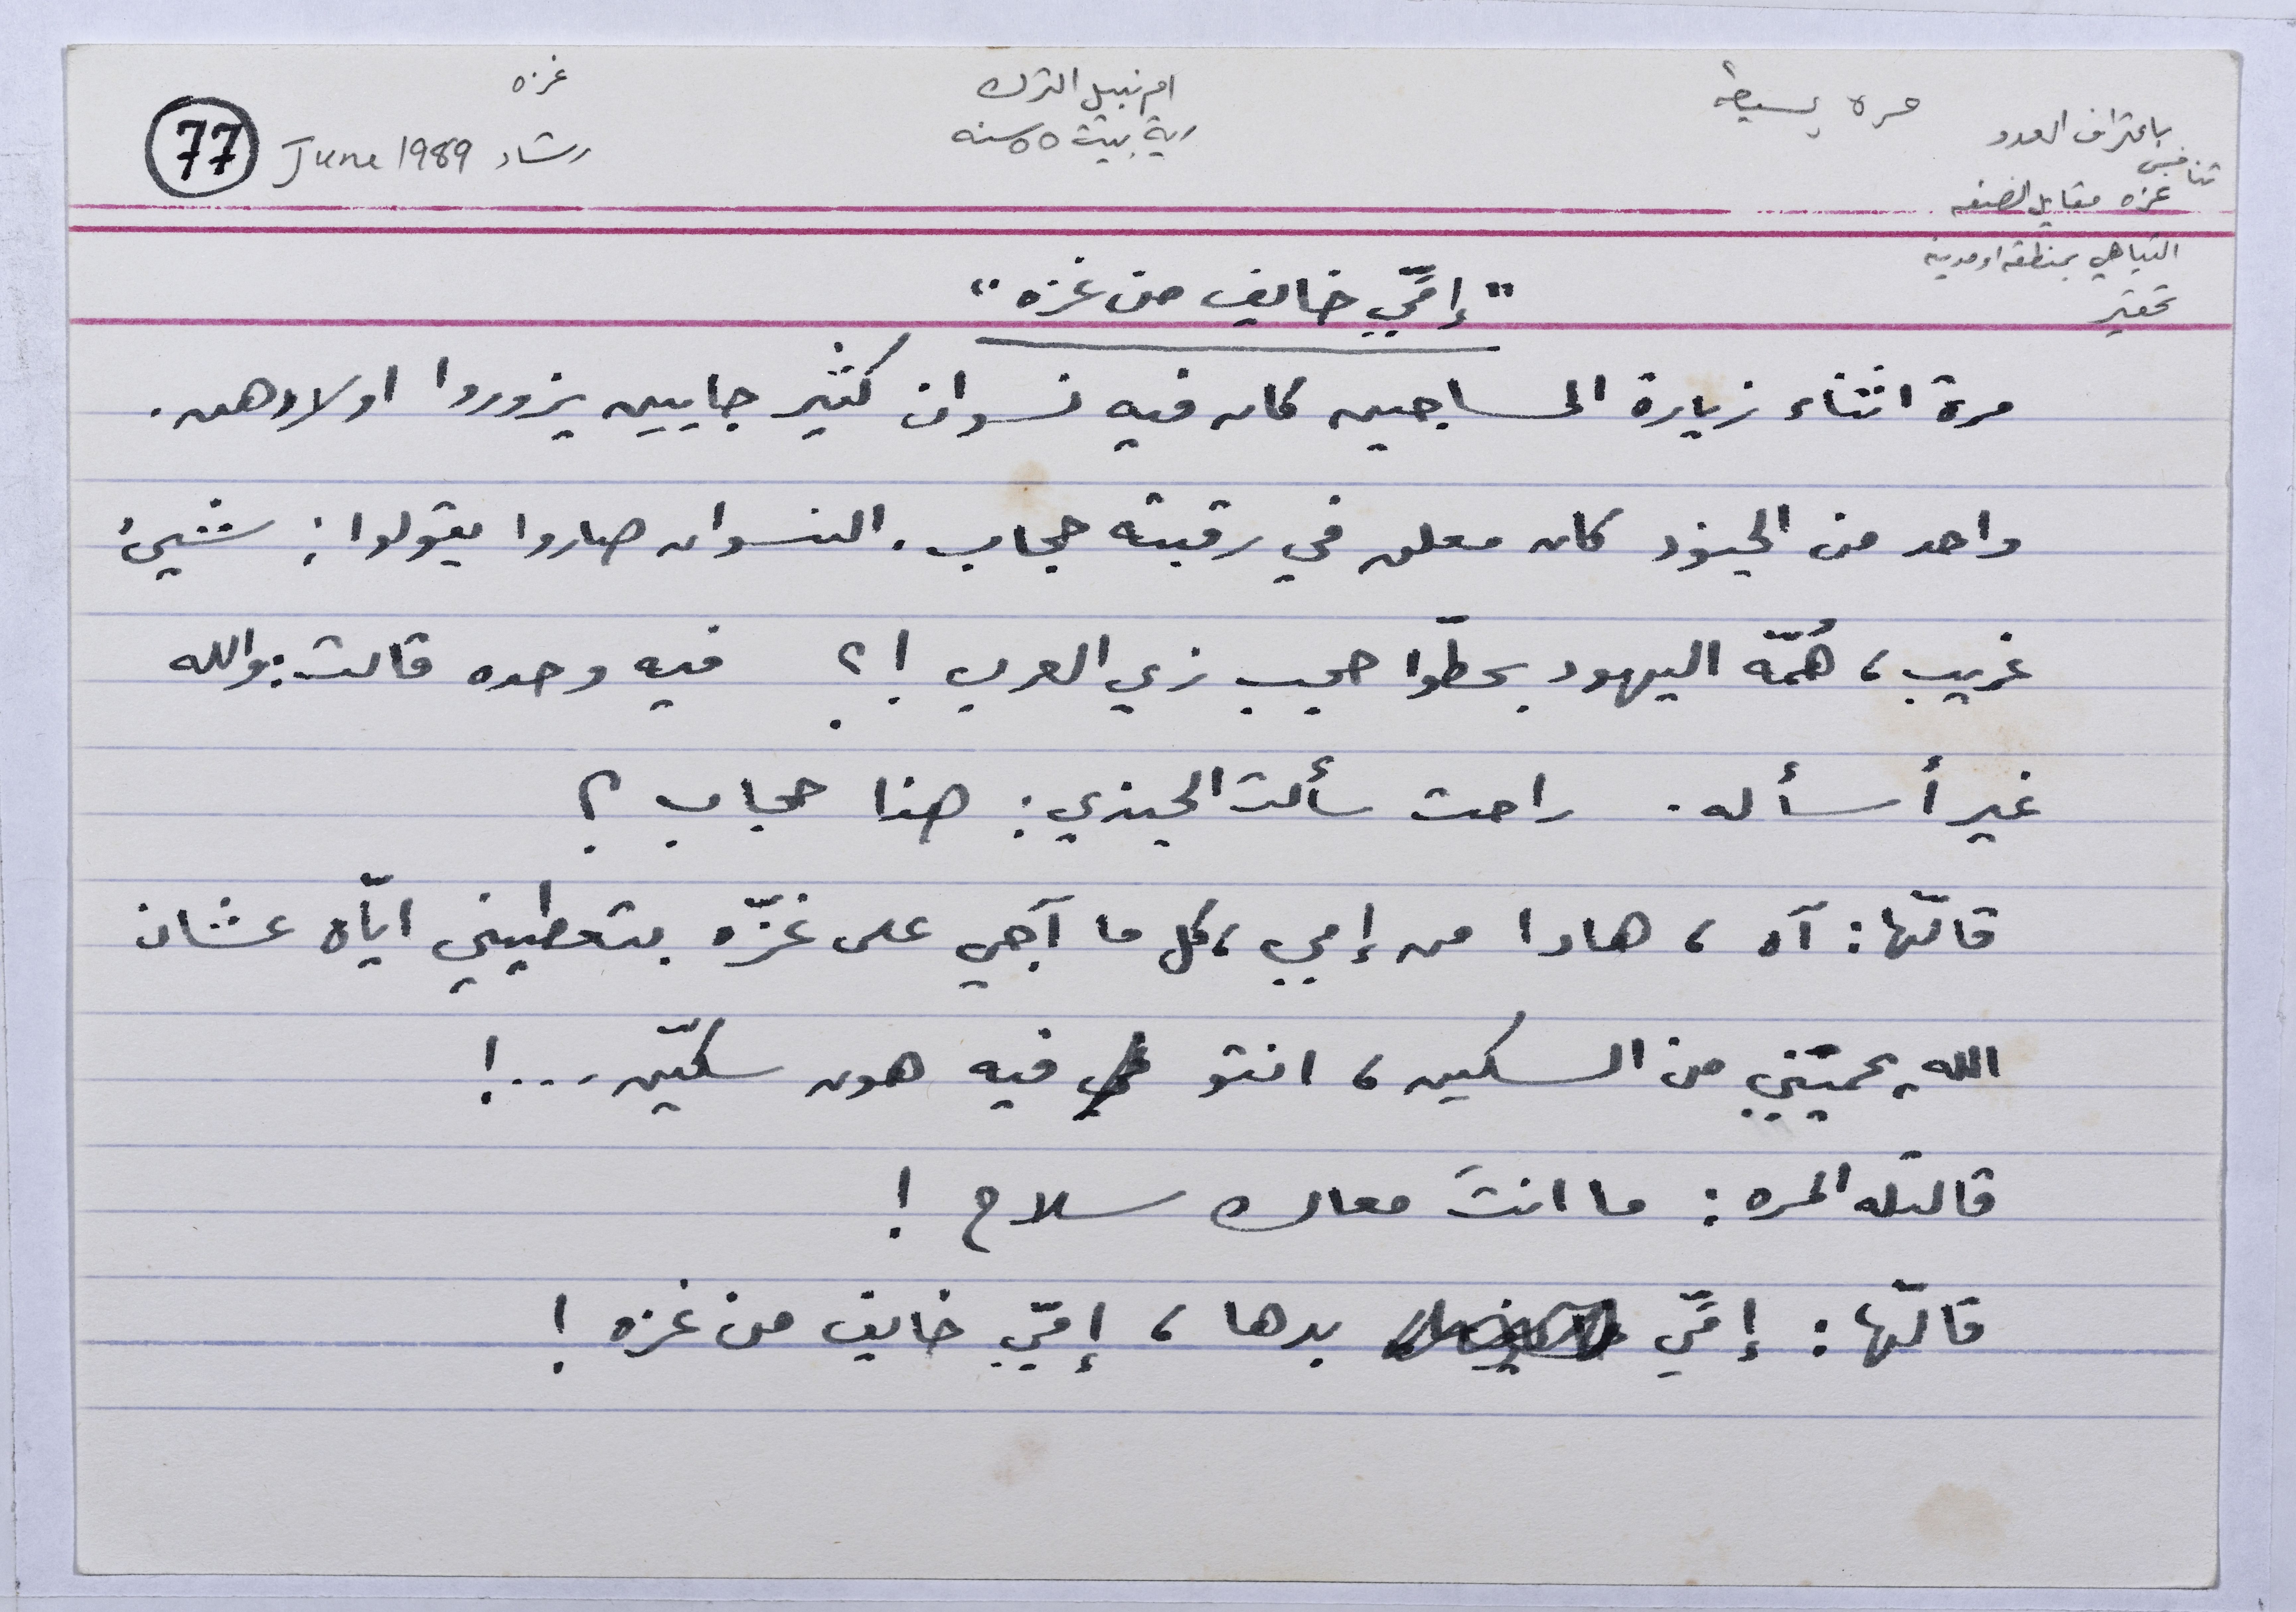 غزه
ام نبيل الترك
مره بسيطة
باعتراف العدو
77
June 1989 رشاد
ربة بيت ٥٥ سنه
تنافس
غزه مقابل الضفه
التباهي بمنطقه او مدينه
تحقير
"إمّي خايف من غزه"
مرة اثناء زيارة المساجين كان فيه نسوان كثير جايين يزوروا اولادهن.
واحد من الجنود كان معلق في رقبته حجاب. النسوان صاروا يقولوا: شيئ
غريب، هُمّه اليهود بحطّوا حجب زي العرب !؟ فيه وحده قالت: والله
غير أسأله. راحت سألت الجندي: هذا حجاب ؟
قالّها: آه ، هادا من إمي، كل ما آجي على غزّه بتعطيني ايّاه عشان
الله يحميّني من السكين، انتو فيه هون سكيّن...!
قالتله المره: ما انتَ معاك سلاح !
قالّها: إمّي بدها ، إمّي خايف من غزه !